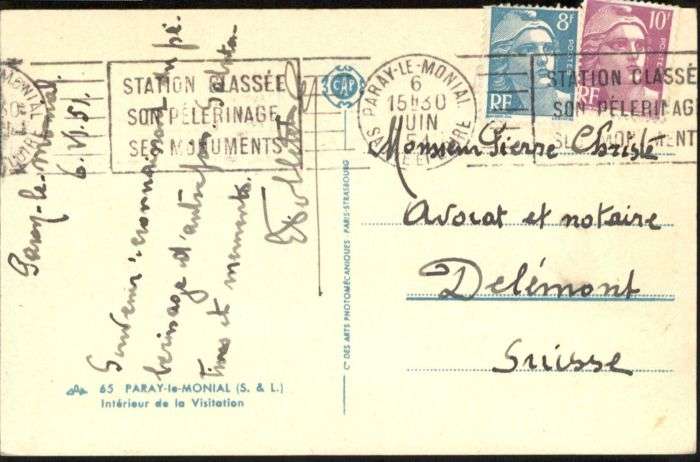 Paray-le-Monial
6.VI.51.
Souvenir
d'autrefois.
et memento.
STATION CLASSÉE
SON PÈLERINAGE
SES MONUMENTS
CAP
PARAY-LE-MONIAL
6
15H30
JUIN
SAÔNE ET LOIRE
8F
POSTES
RF
10F
POSTES
RF
STATION CLASSÉ
SON PÈLERINAG
Monsieur Pierre Christe
Avocat et notaire
Delémont
Suisse
65 PARAY-le-MONIAL (S. & L.)
Intérieur de la Visitation
Cie DES ARTS PHOTOMÉCANIQUES PARIS-STRASBOURG